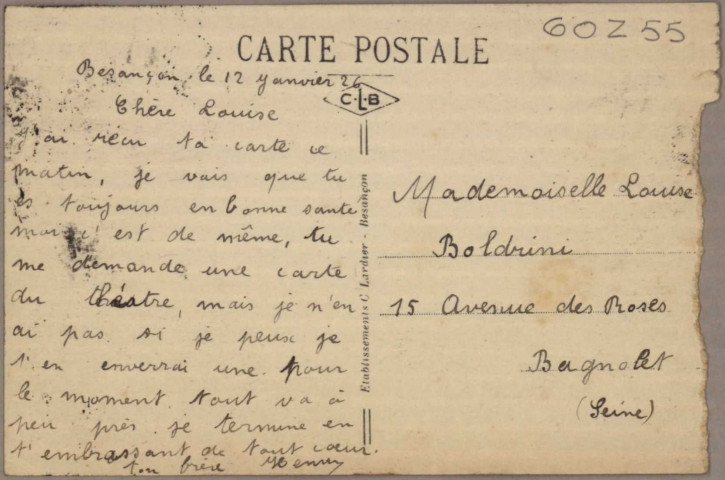 60Z55
CARTE POSTALE
Besançon le 12 Janvier 26
C.L.B
Chère Louise
ai réçu ta carte ce
matin, je vais que tu
es toujours en bonne sante
moi c'est de même, tu
me demande une carte
du théatre, mais je n'en
ai pas si je peux je
t'en enverrai une. pour
le moment tout va à
peu près je termine en
t'embrassant de tout cœur.
ton frère Henry
Etablissements C. Lardier - Besançon
Mademoiselle Louise
Boldrini
15 Avenue des Roses
Bagnolet
(Seine)